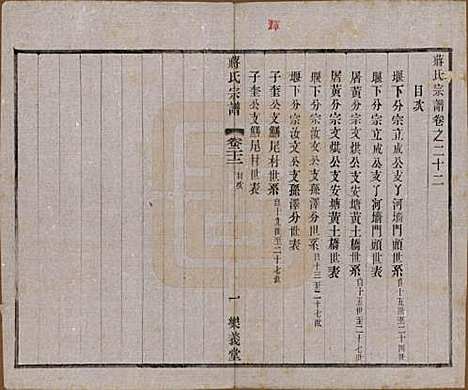 蔣氏宗譜卷之二十二
目次
堰下分宗立成公支丫河墻門頭世系自十五世至二十四世
堰下分宗立成公支丫河墻門頭世表
居黃分宗支烘公支安塘黃土橋世系自十五世至二十七世
居黃分宗支烘公支安塘黃土橋世表
堰下分宗汝文公支孫澤分世系自十三至二十七世
堰下分宗汝文公支孫澤分世表
子奎公支鱔尾村世系自十九世至二十七世
子奎公支鱔尾村世表
蔣氏宗譜 卷二十二 目次 一 樂義堂